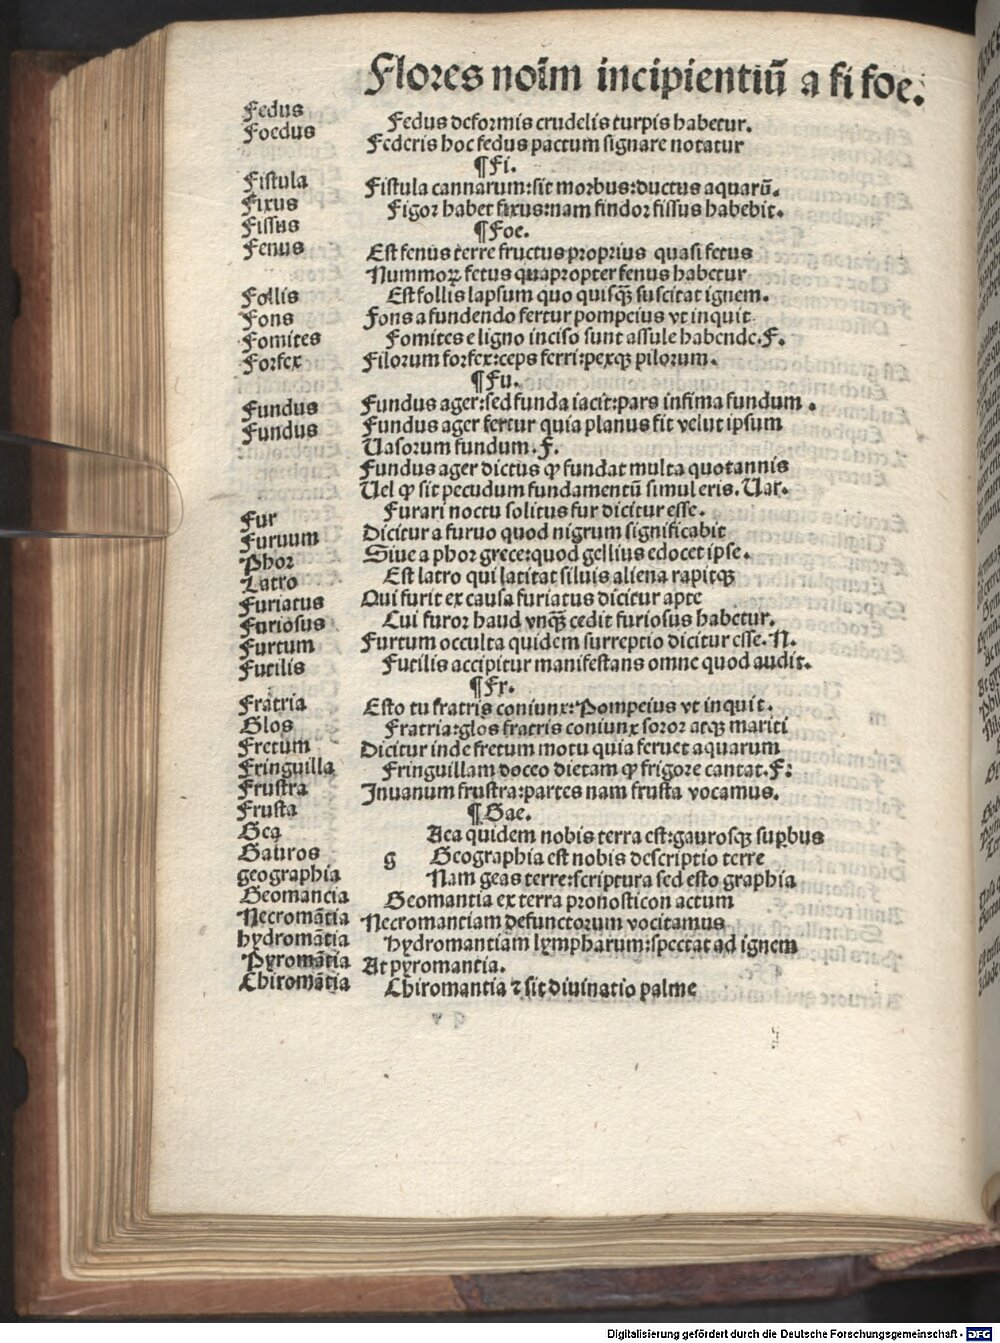 Flores noĩm incipientiũ a fi foe.
Fedus Fedus deformis crudelis turpis habetur.
Foedus Federis hoc fedus pactum signare notatur
¶Fi.
Fistula Fistula cannarum:sit morbus:ductus aquarũ.
Fixus Figor habet fixus:nam findor fissus habebit.
Fissus ¶Foe.
Fenus Est fenus terre fructus proprius quasi fetus
Nummoꝝ fetus quapropter fenus habetur
Follis Est follis lapsum quo quisqꝫ suscitat ignem.
Fons Fons a fundendo fertur pompeius vt inquit
Fomites Fomites e ligno inciso sunt assule habende.F.
Forfex Filorum forfex:ceps ferri:pexqꝫ pilorum.
¶Fu.
Fundus Fundus ager:sed funda iacit:pars infima fundum.
Fundus Fundus ager fertur quia planus fit velut ipsum
Uasorum fundum.F.
Fundus ager dictus ꝙ fundat multa quotannis
Uel ꝙ sit pecudum fundamentũ simul eris.Uar.
Fur Furari noctu solitus fur dicitur esse.
Furuum Dicitur a furuo quod nigrum significabit
Phor Siue a phor grece:quod gellius edocet ipse.
Latro Est latro qui latitat siluis aliena rapitqꝫ
Furiatus Qui furit ex causa furiatus dicitur apte
Furiosus Cui furor haud vnqꝫ cedit furiosus habetur.
Furtum Furtum occulta quidem surreptio dicitur esse.N.
Futilis Futilis accipitur manifestans omne quod audit.
¶Fr.
Fratria Esto tu fratris coniunx:Pompeius vt inquit.
Glos Fratria:glos fratris coniunx soror atqꝫ mariti
Fretum Dicitur inde fretum motu quia feruet aquarum
Fringuilla Fringuillam doceo dictam ꝙ frigore cantat.F:
Frustra Inuanum frustra:partes nam frusta vocamus.
Frusta ¶Gae.
Gea Aea quidem nobis terra est:gaurosqꝫ suꝑbus
Gauros g Geographia est nobis descriptio terre
geographia Nam geas terre:scriptura sed esto graphia
Geomancia Geomantia ex terra pronosticon actum
Necromãtia Necromantiam defunctorum vocitamus
hydromãtia hydromantiam lympharum:spectat ad ignem
Pyromãtia At pyromantia.
Chiromãtia Chiromantia ⁊ sit diuinatio palme
Digitalisierung gefördert durch die Deutsche Forschungsgemeinschaft - DFG